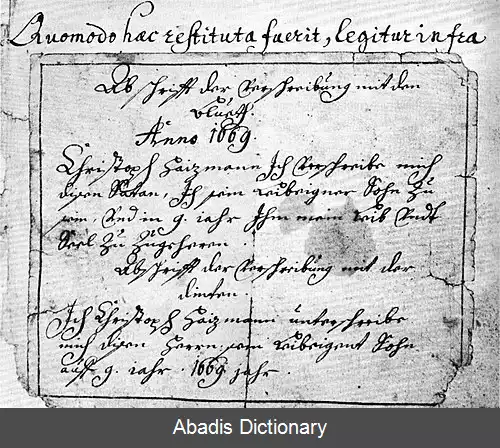 Quomodo haec restituta fuerit, legitur infra
Abschrifft der Verschreibung mit den
bluett.
Anno 1669.
Christoph Haizmann Ich Verschreibe mich
disen Satan, Ich sein leibeigner Sohn zu
sein, Und in 9. iahr Ihm mein leib Undt
Seel zu zugeheren.
Abschrifft der Verschreibung mit der
dinten.
Ich Christoph Haizmann unterschreibe
mich disen Herrn sein leibeigent Sohn
auff 9. iahr. 1669 jahr.
Abadis Dictionary